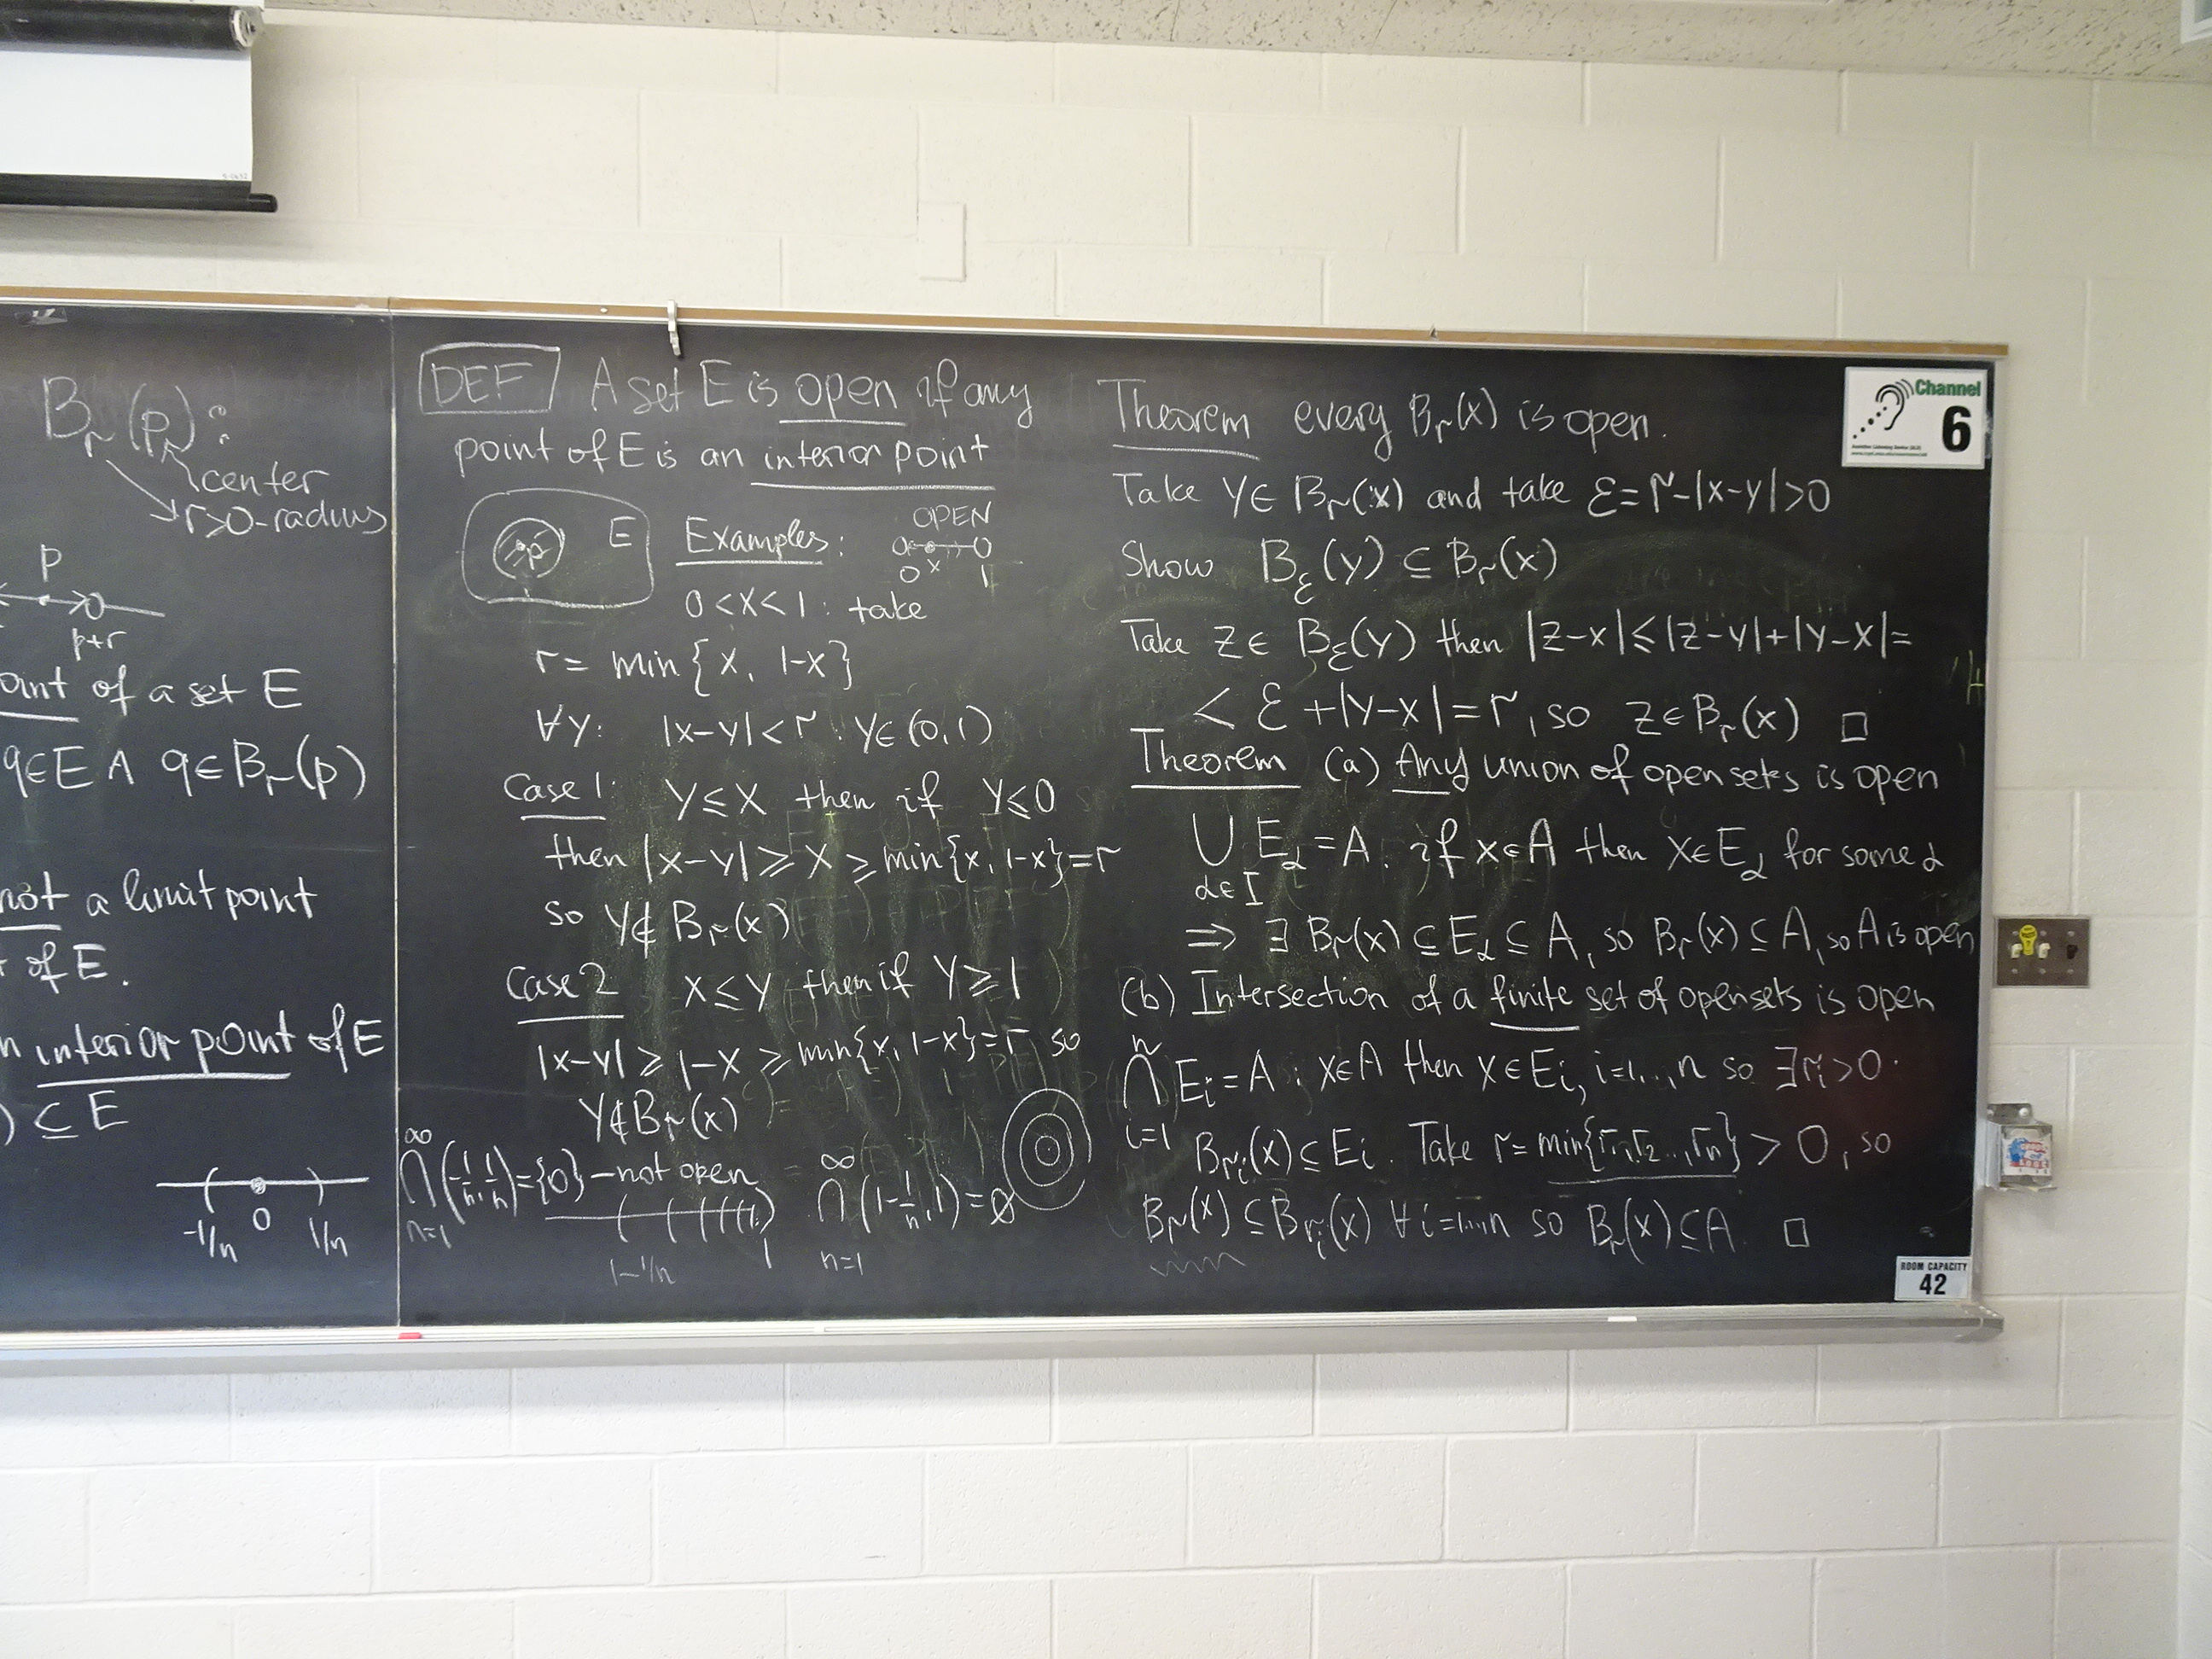 B_r(p):
center
r>0-radius
p
p+r
of a set E
q∈E ∧ q∈B_r(p)
not a limit point
of E.
interior point of E
) ⊆ E
-1/n 0 1/n
DEF A set E is open if any
point of E is an interior point
p E
Examples:
OPEN
0 x 1
0<x<1: take
r= min{x, 1-x}
∀y: |x-y|<r : y∈(0,1)
Case 1: y≤x then if y≤0
then |x-y|≥x≥min{x, 1-x}=r
so y∉B_r(x)
Case 2 x≤y then if y≥1
|x-y|≥1-x≥min{x, 1-x}=r so
y∉B_r(x)
⋂_{n=1}^∞ (-1/n, 1/n)={0}-not open
1-1/n 1
⋂_{n=1}^∞ (1-1/n, 1)=∅
Theorem every B_r(x) is open.
Take y∈B_r(x) and take ε=r-|x-y|>0
Show B_ε(y)⊆B_r(x)
Take z∈B_ε(y) then |z-x|≤|z-y|+|y-x|=
<ε+|y-x|=r, so z∈B_r(x) □
Theorem (a) Any union of open sets is open
⋃_{α∈I} E_α=A. if x∈A then x∈E_α for some α
⇒ ∃ B_r(x)⊆E_α⊆A, so B_r(x)⊆A, so A is open
(b) Intersection of a finite set of open sets is open
⋂_{i=1}^n E_i=A : x∈A then x∈E_i, i=1...,n so ∃r_i>0:
B_{r_i}(x)⊆E_i. Take r=min{r_1,r_2...,r_n}>0, so
B_r(x)⊆B_{r_i}(x) ∀i=1...,n so B_r(x)⊆A. □
Channel
6
ROOM CAPACITY
42